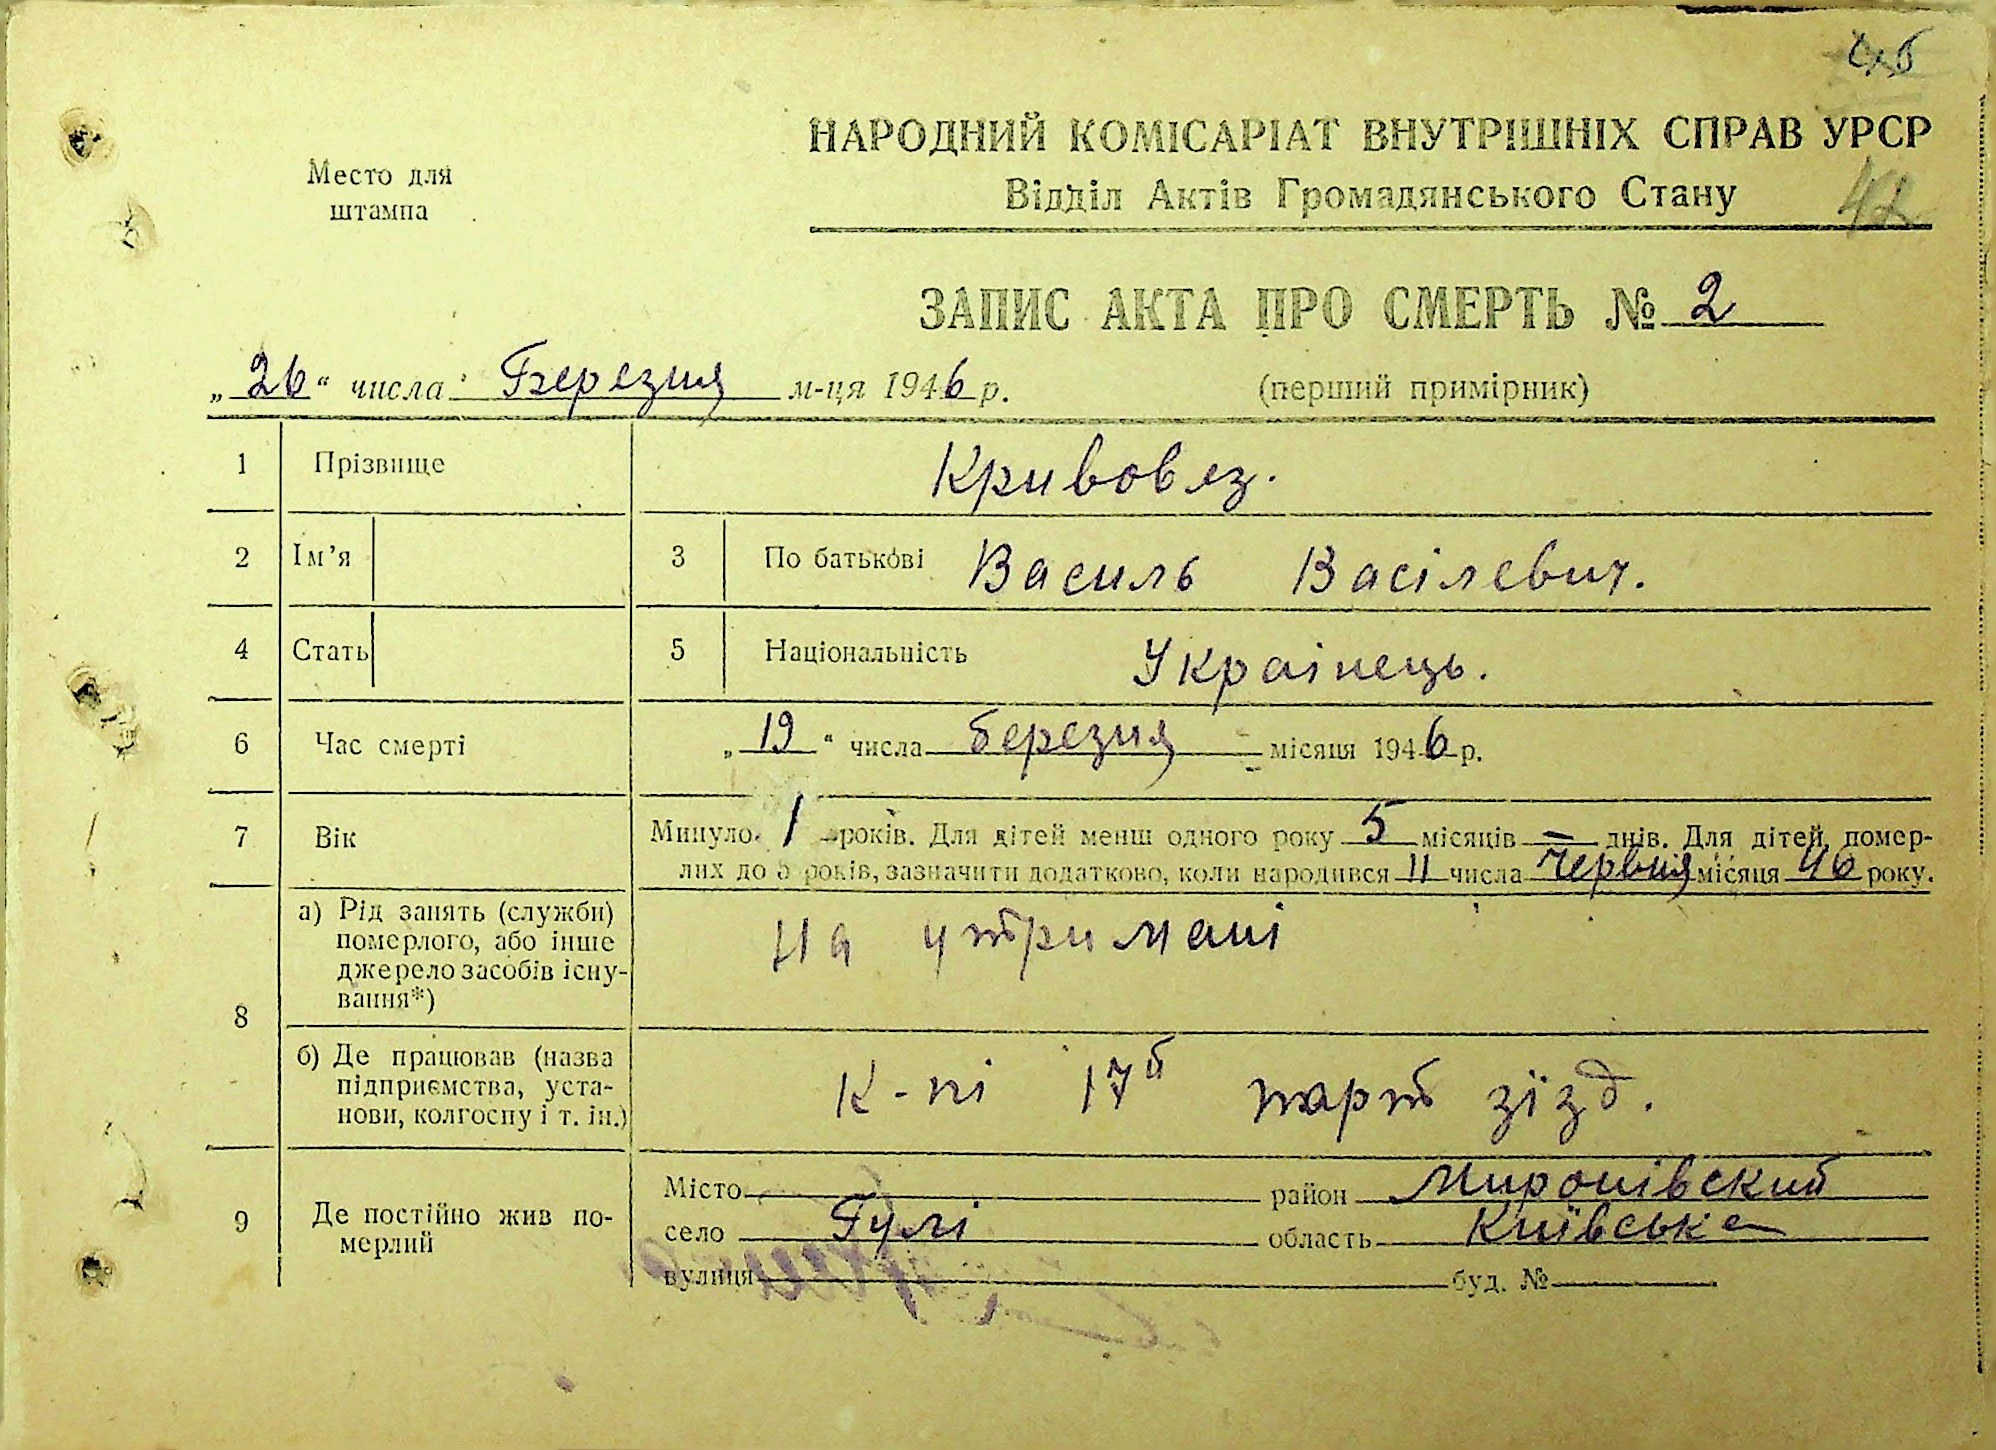 НАРОДНИЙ КОМІСАРІАТ ВНУТРІШНІХ СПРАВ УРСР
Место для
штампа
Відділ Актів Громадянського Стану
42
ЗАПИС АКТА ПРО СМЕРТЬ № 2
„26“ числа Березня м-ця 1946 р. (перший примірник)
1 Прізвище Кривовяз.
2 Ім'я 3 По батькові Василь Васілевич.
4 Стать 5 Національність Украінець.
6 Час смерті „19“ числа березня місяця 1946 р.
7 Вік Минуло 1 років. Для дітей менш одного року 5 місяців — днів. Для дітей, помер-
лих до 5 років, зазначити додатково, коли народився 11 числа червня місяця 46 року.
8 а) Рід занять (служби)
померлого, або інше
джерело засобів існу-
вання*)
На утримані
б) Де працював (назва
підприємства, уста-
нови, колгоспу і т. ін.)
К-пі 17й парт зїзд.
9 Де постійно жив по-
мерлий
Місто район Миронівский
село Гулі область Київська
вулиця буд. №